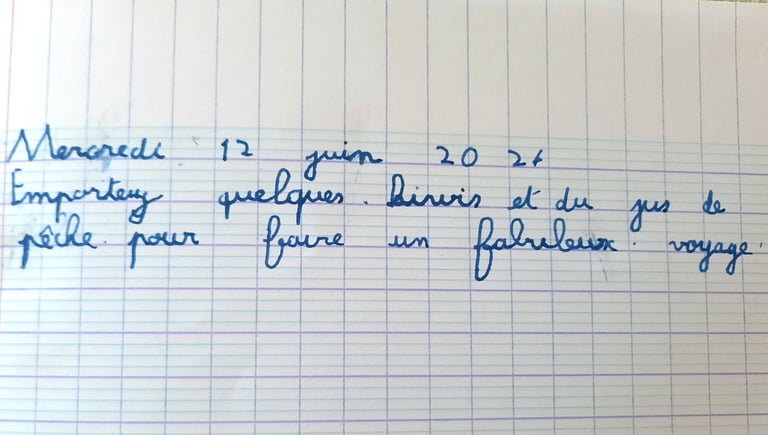 Mercredi 12 juin 2024
Emportez quelques kiwis et du jus de
pêche pour faire un fabuleux voyage.